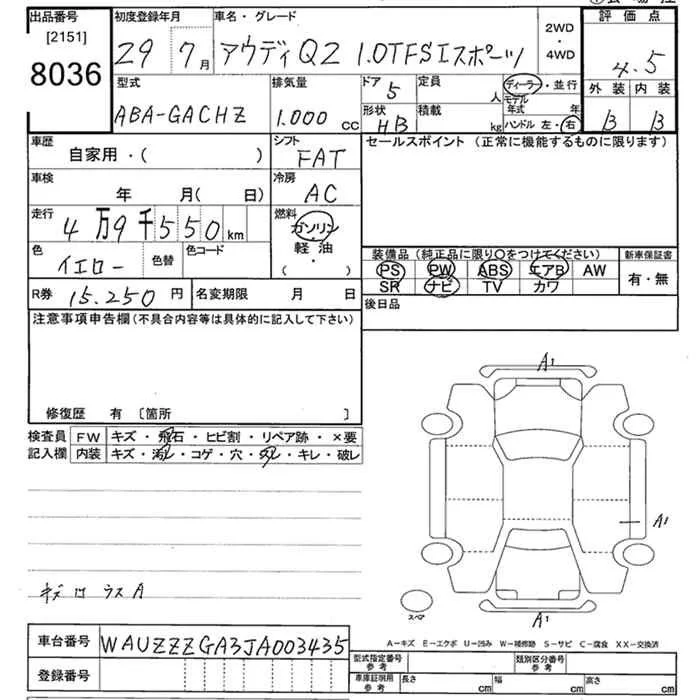 出品番号 初度登録年月 車名・グレード 評価点
[2151]
8036
29 7月 アウディQ2 1.0TFSIスポーツ 2WD・4WD 4.5
型式 排気量 ドア 5 定員 人 ディーラー・並行 外装 内装
ABA-GACHZ 1.000cc 形状 HB 積載 kg モデル年式 年 B B
ハンドル 左・右
車歴 自家用・( ) シフト FAT セールスポイント (正常に機能するものに限ります)
車検 年 月(日) 冷房 AC
走行 4万9千550km 燃料 ガソリン・軽油 ( ・ )
色 イエロー 色替 色コード
装備品(純正品に限り〇をつけてください) 新車保証書
PS PW ABS エアB AW 有・無
SR ナビ TV カワ
R券 15.250円 名変期限 月 日 後日品
注意事項申告欄(不具合内容等は具体的に記入して下さい)
修復歴 有 〔箇所 〕
A1
検査員 FW キズ・飛石・ヒビ割・リペア跡・×要
記入欄 内装 キズ・汚レ・コゲ・穴・スレ・キレ・破レ
A1
スペア
A1
A-キズ E-エクボ U-凹み W-補修跡 S-サビ C-腐食 XX-交換済
車台番号 WAUZZZGA3JA003435
登録番号
型式指定番号 参考 類別区分番号 参考
車庫証明用 参考 長さ cm 幅 cm 高さ cm